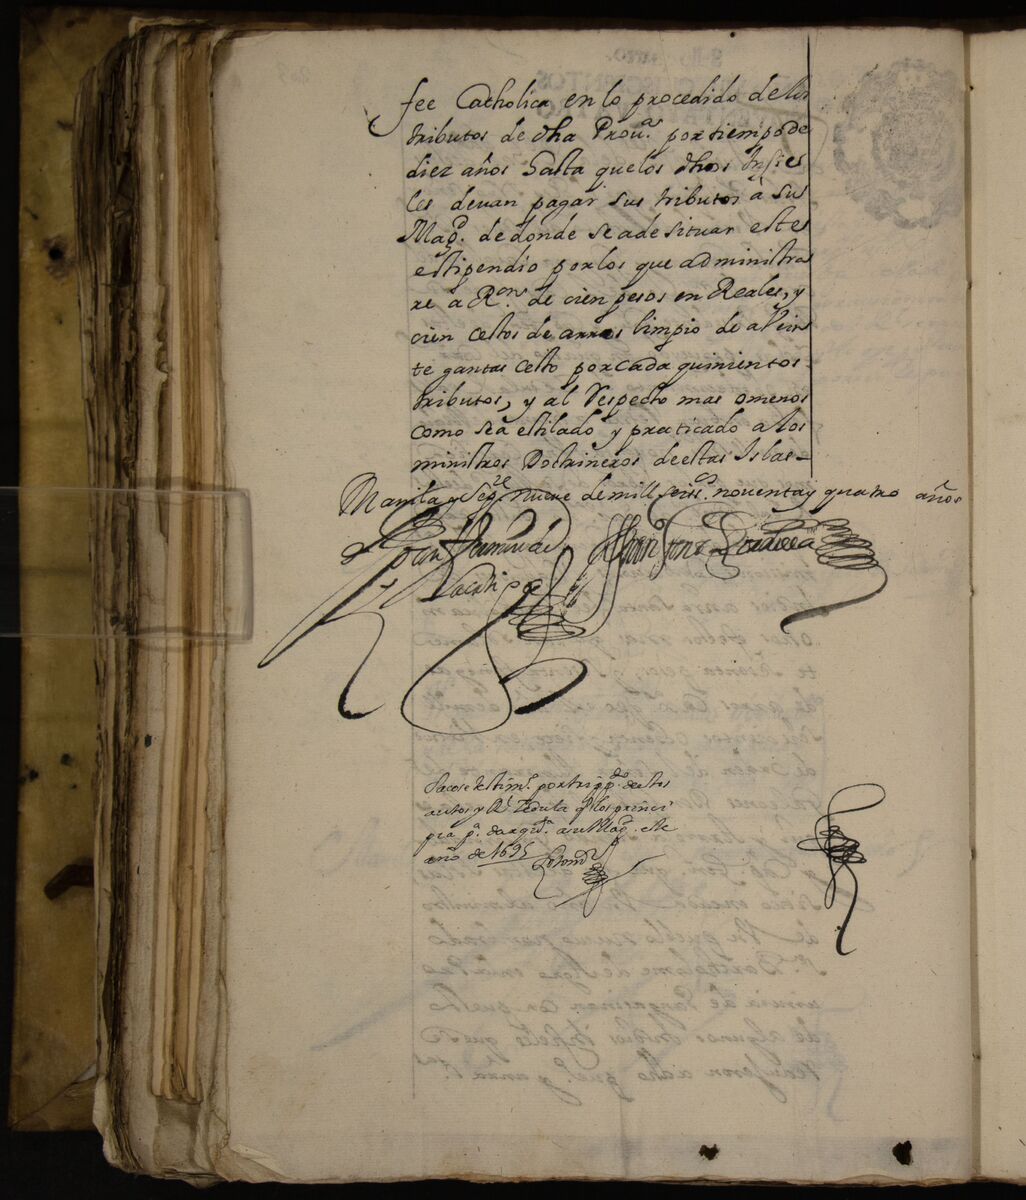 fee Catholica en lo procedido delos
tributos de dha Prouª. por tiempo de
diez años hasta quelos dhos Infie
les deuan pagar sus tributos à su
Magd. de donde se a de situar este
estipendio por los que administra
re à Ron. de cien pesos en Reales, y
cien cestos de arros limpio de a Vein
te gantas cesto por cada quinientos
tributos, y al Respecto mas o menos
como se à estilado y praticado a los
ministros Doctrineros de estas Islas
Manila y Sepre. nueue de mill seiscs. nouenta y quatro años
Sacose testimo. por trippdo. de estos
autos y Rl. Zedula qe. los princi
pia pª. dar qtª. a su Magd. este
año de 1695